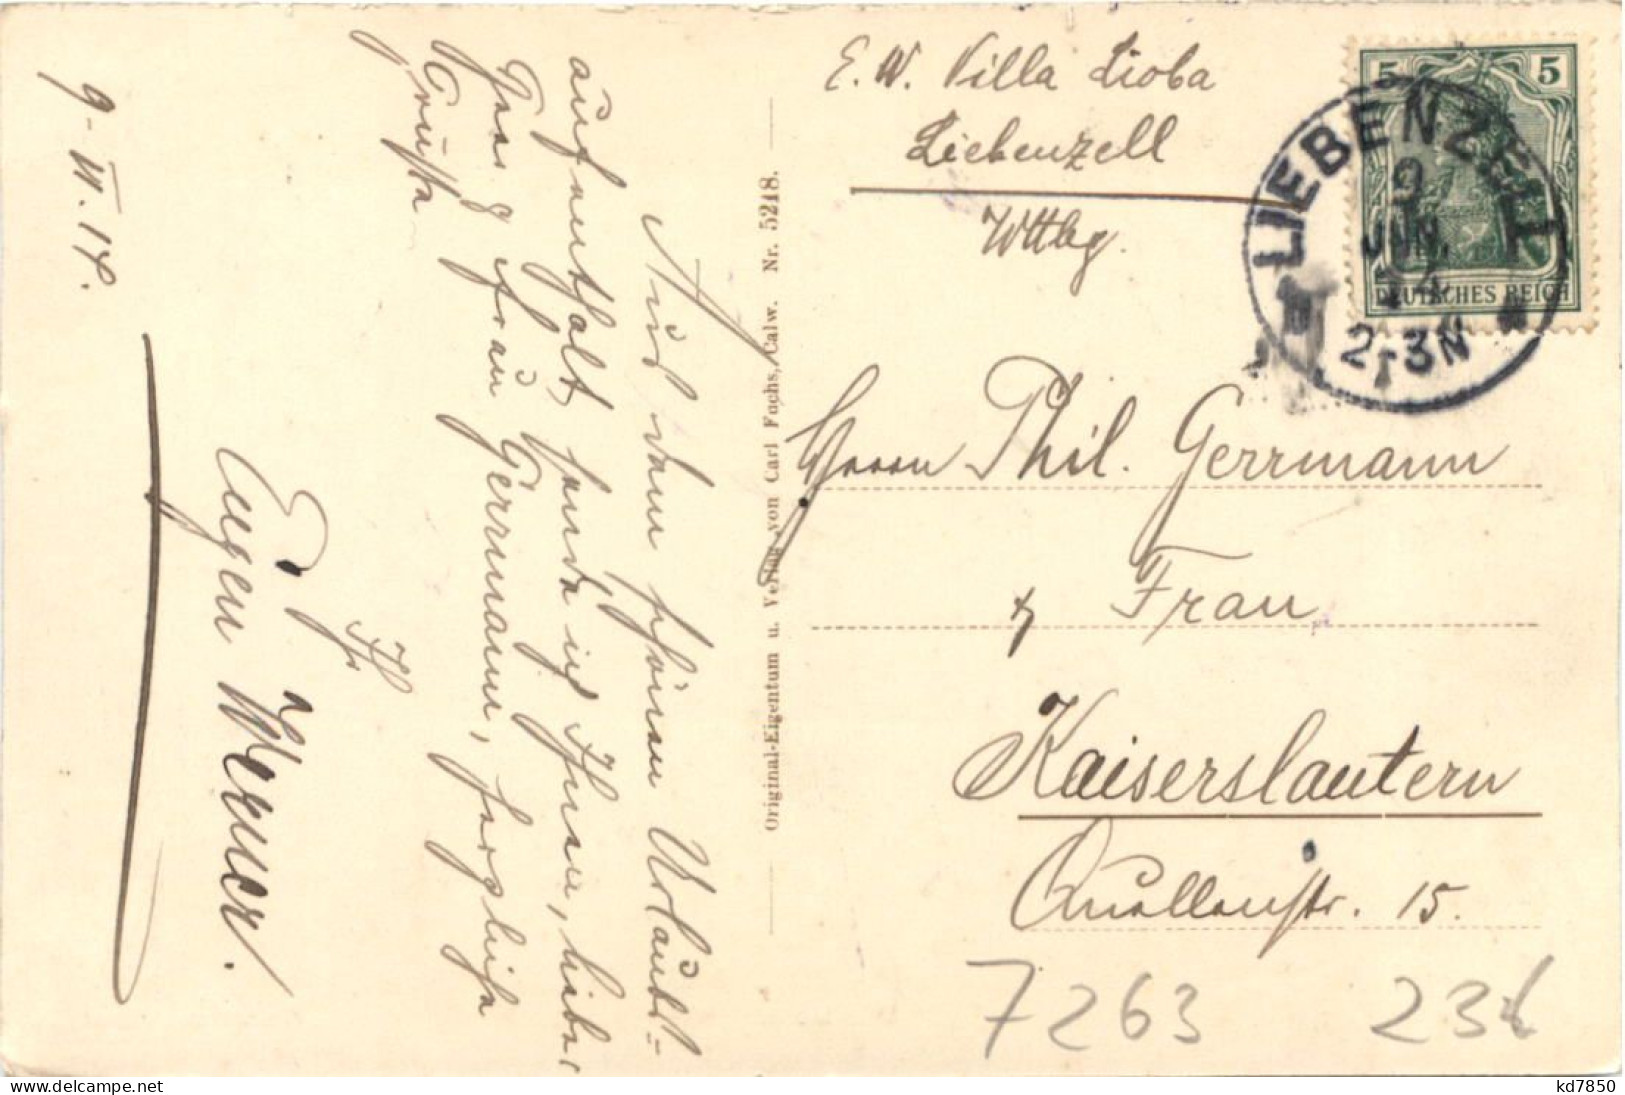 E. W. Villa Lioba
Liebenzell
Wttbg.
5 5
DEUTSCHES REICH
LIEBENZELL
9
JUN.
14
2-3N
Herrn Phil. Gerrmann
& Frau
Kaiserslautern
Quellenstr. 15.
7263 236
Original-Eigentum u. Verlag von Carl Fuchs, Calw. Nr. 5218.
Aus dem schönen Urlaubs-
aufenthalt sende ich Ihnen, lieber
Herr & Frau Gerrmann, herzliche
Grüsse
Ihr
Eugen Werner.
9. VI. 14.
kd7850